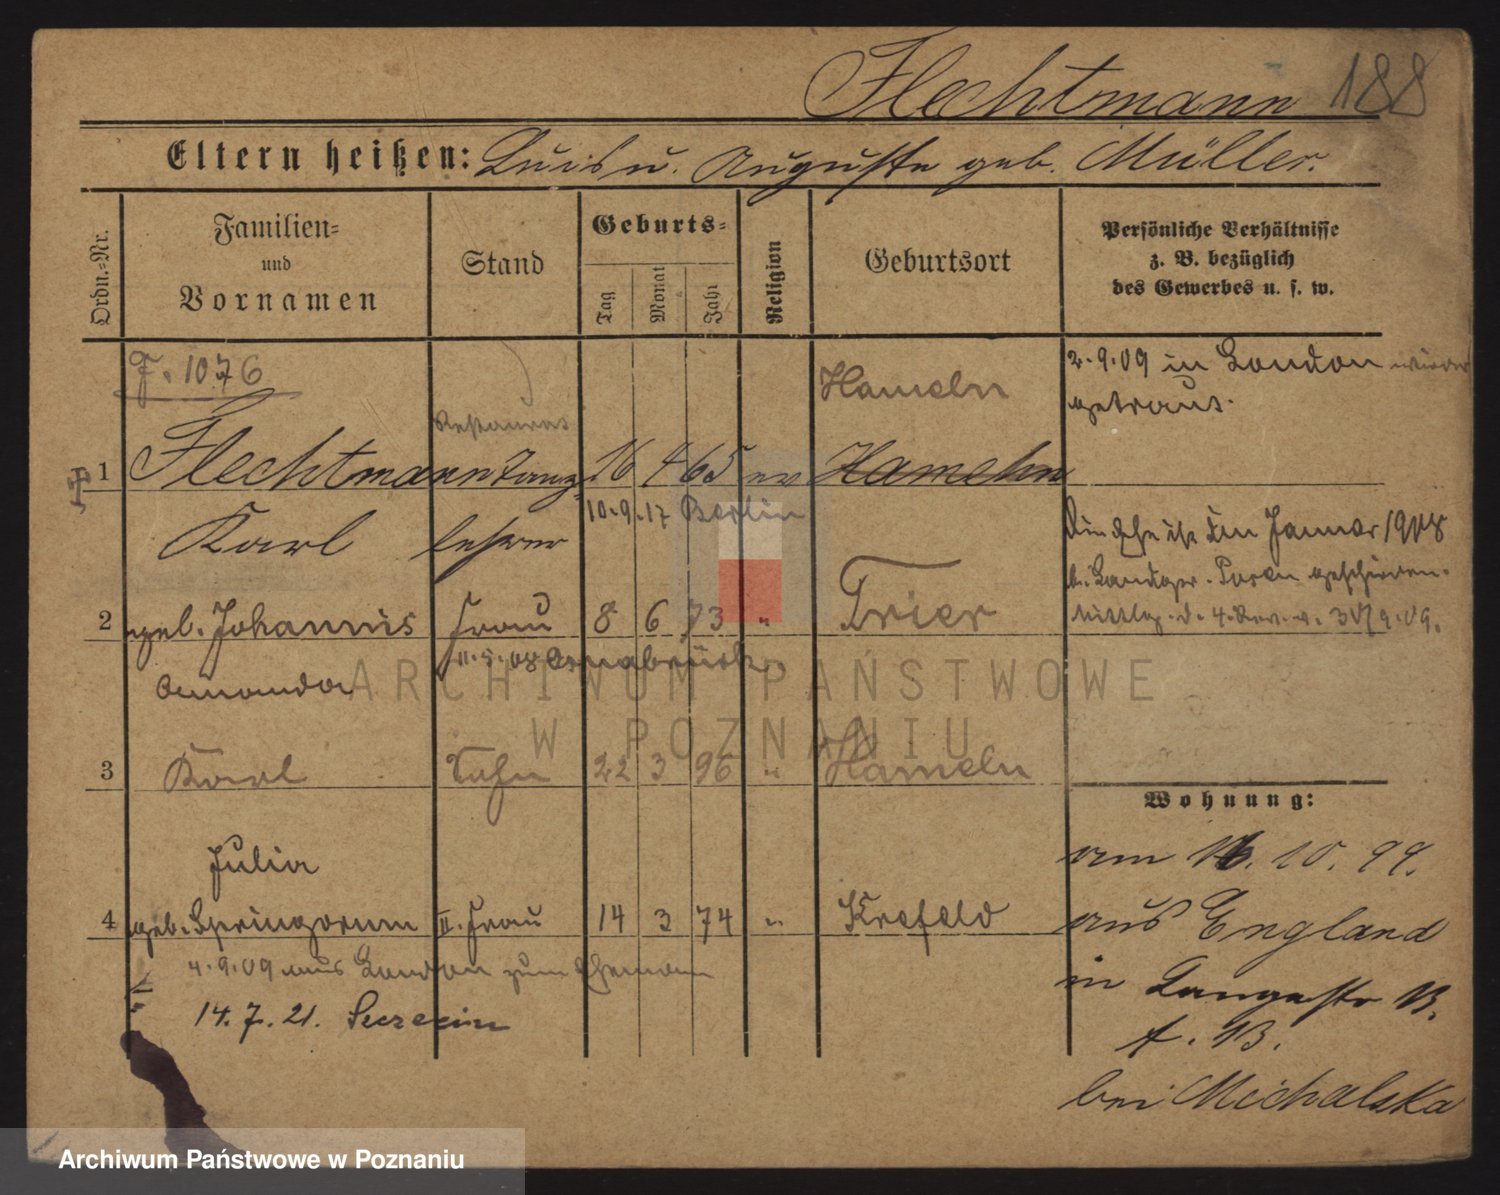 Flechtmann 188
Eltern heißen: Luis u. Auguste geb. Müller.
Ordn.=Nr.
Familien=
und
Vornamen
Stand
Geburts=
Tag
Monat
Jahr
Religion
Geburtsort
Persönliche Verhältnisse
z. B. bezüglich
des Gewerbes u. s. w.
F. 1076
Hameln
2.9.09 in London wieder
getraut.
1 Flechtmann Tanz= 16 4 65 ev Hameln
Karl lehrer
10.9.17 Berlin
Die Ehe ist im Januar 1908
b. Landger. Posen geschieden.
4. Rev. v. 30/9.09.
2 geb. Johannis Frau 8 6 73 " Trier
Amanda
11.5.08 Osnabrück
3 Karl Sohn 22 3 96 " Hameln
Julia
4 geb. Springorum II. Frau 14 3 74 " Krefeld
4.9.09 aus London zum Ehemann
14.7.21. Szczecin
Wohnung:
am 16.10.99.
aus England
in Langestr 13.
bei Michalska
ARCHIWUM PAŃSTWOWE
W POZNANIU
Archiwum Państwowe w Poznaniu